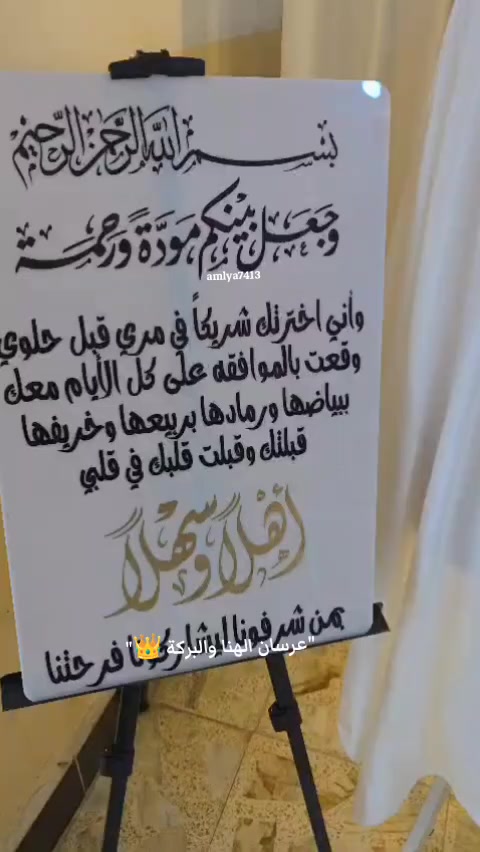 بسم الله الرحمن الرحيم
وجعل بينكم مودة ورحمة
amlya7413
وأني اخترتك شريكاً في مري قبل حلوي
وقعت بالموافقه على كل الأيام معك
ببياضها ورمادها بربيعها وخريفها
قبلتك وقبلت قلبك في قلبي
أهلاً وسهلاً
بمن شرفونا ليشاركونا فرحتنا
"عرسان الهنا والبركة 👑"